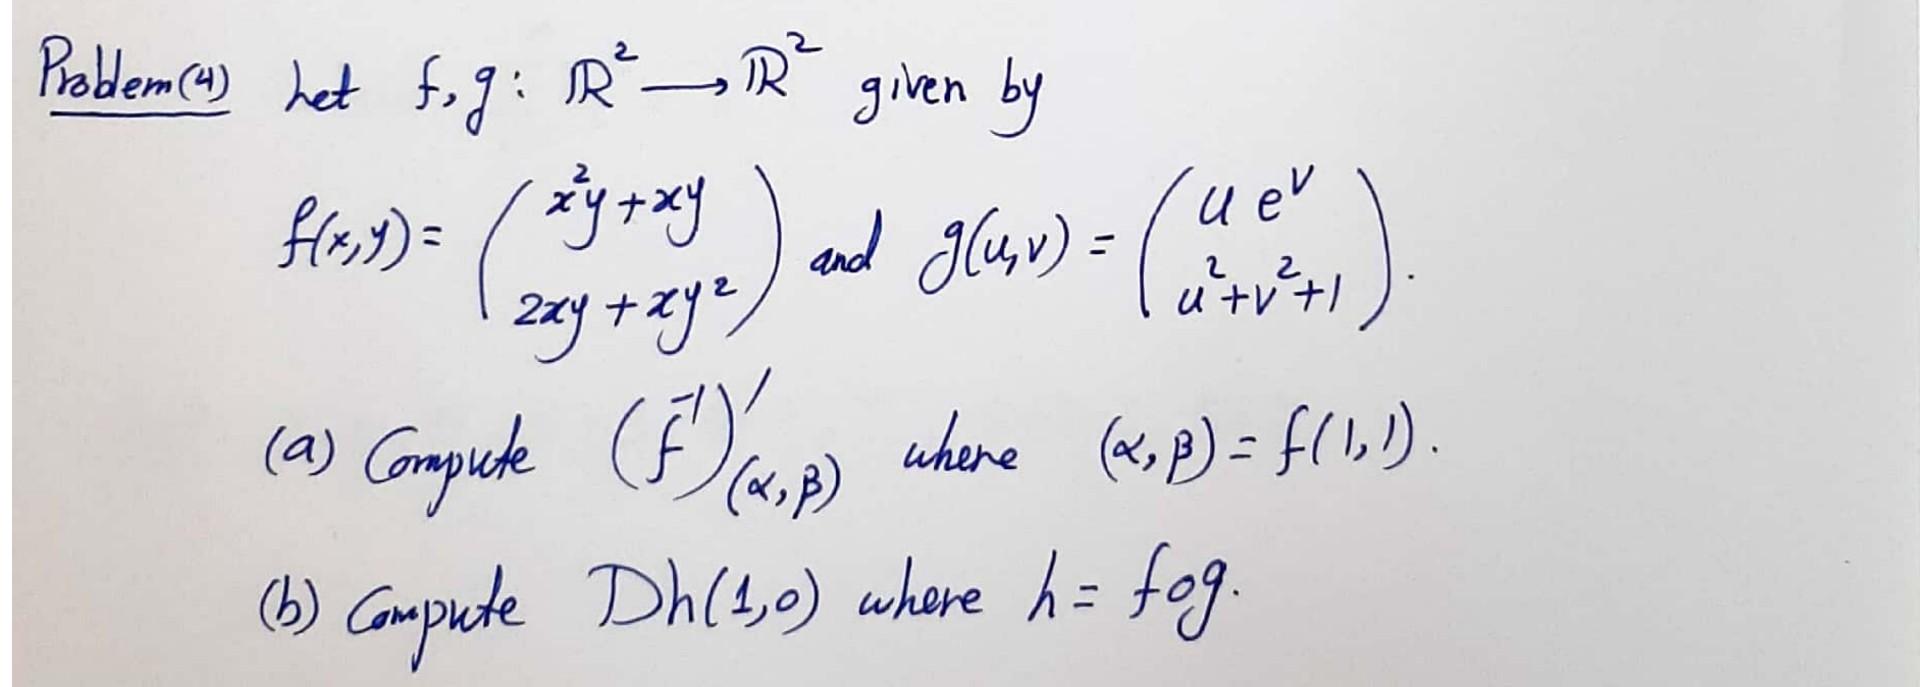 Problem (4) Let f, g : ℝ² → ℝ² given by
f(x,y) = ( x²y + xy ; 2xy + xy² ) and g(u,v) = ( u eᵛ ; u² + v² + 1 ).
(a) Compute (f⁻¹)′(α,β) where (α,β) = f(1,1).
(b) Compute Dh(1,0) where h = f∘g.